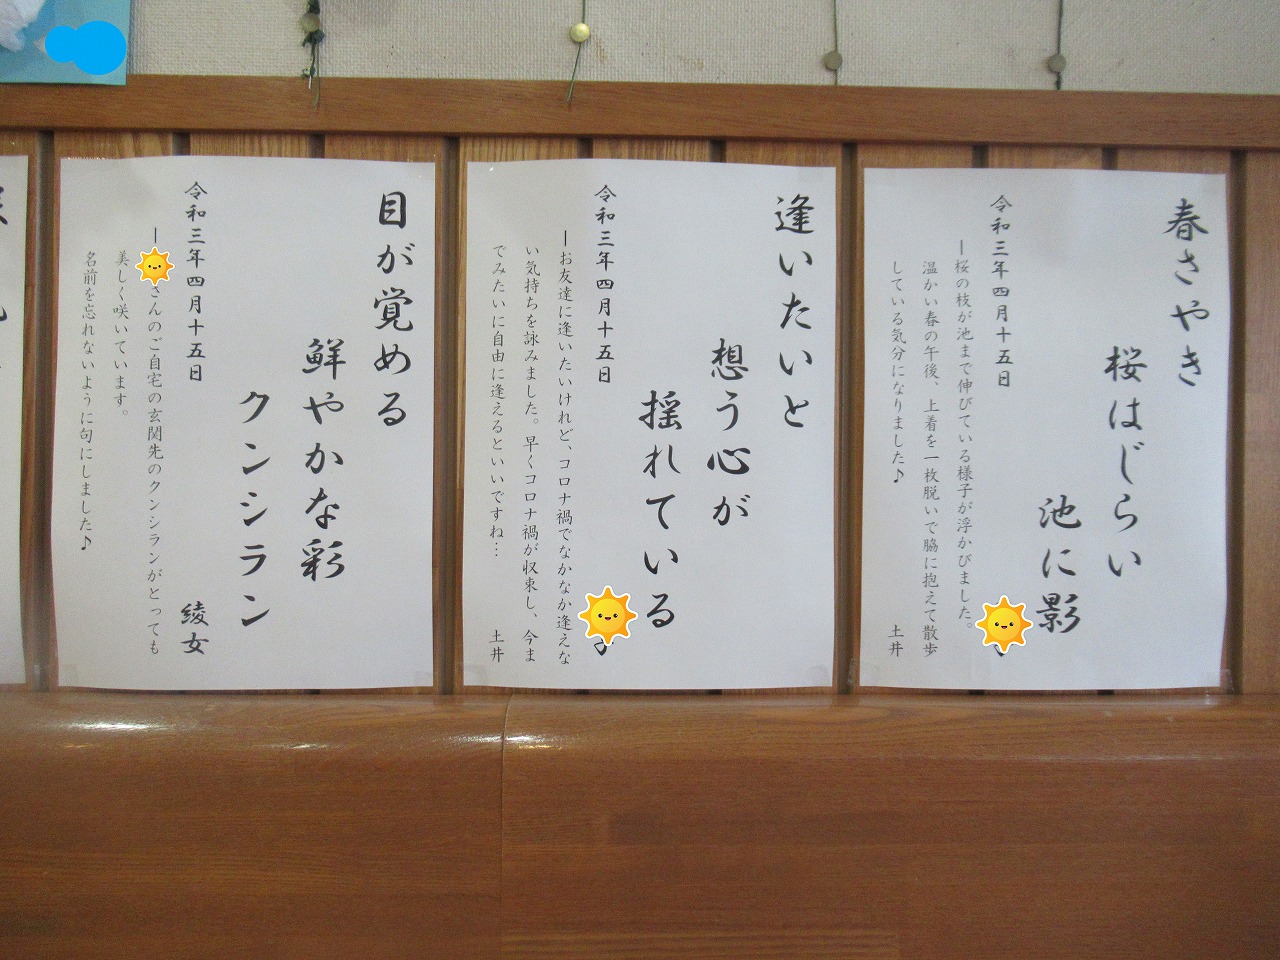 春さやき
桜はじらい
池に影
令和三年四月十五日
ー桜の枝が池まで伸びている様子が浮かびました。
温かい春の午後、上着を一枚脱いで脇に抱えて散歩
している気分になりました♪
土井
逢いたいと
想う心が
揺れている
令和三年四月十五日
ーお友達に逢いたいけれど、コロナ禍でなかなか逢えな
い気持ちを詠みました。早くコロナ禍が収束し、今ま
でみたいに自由に逢えるといいですね…
土井
目が覚める
鮮やかな彩
クンシラン
令和三年四月十五日
綾女
ー さんのご自宅の玄関先のクンシランがとっても
美しく咲いています。
名前を忘れないように句にしました♪